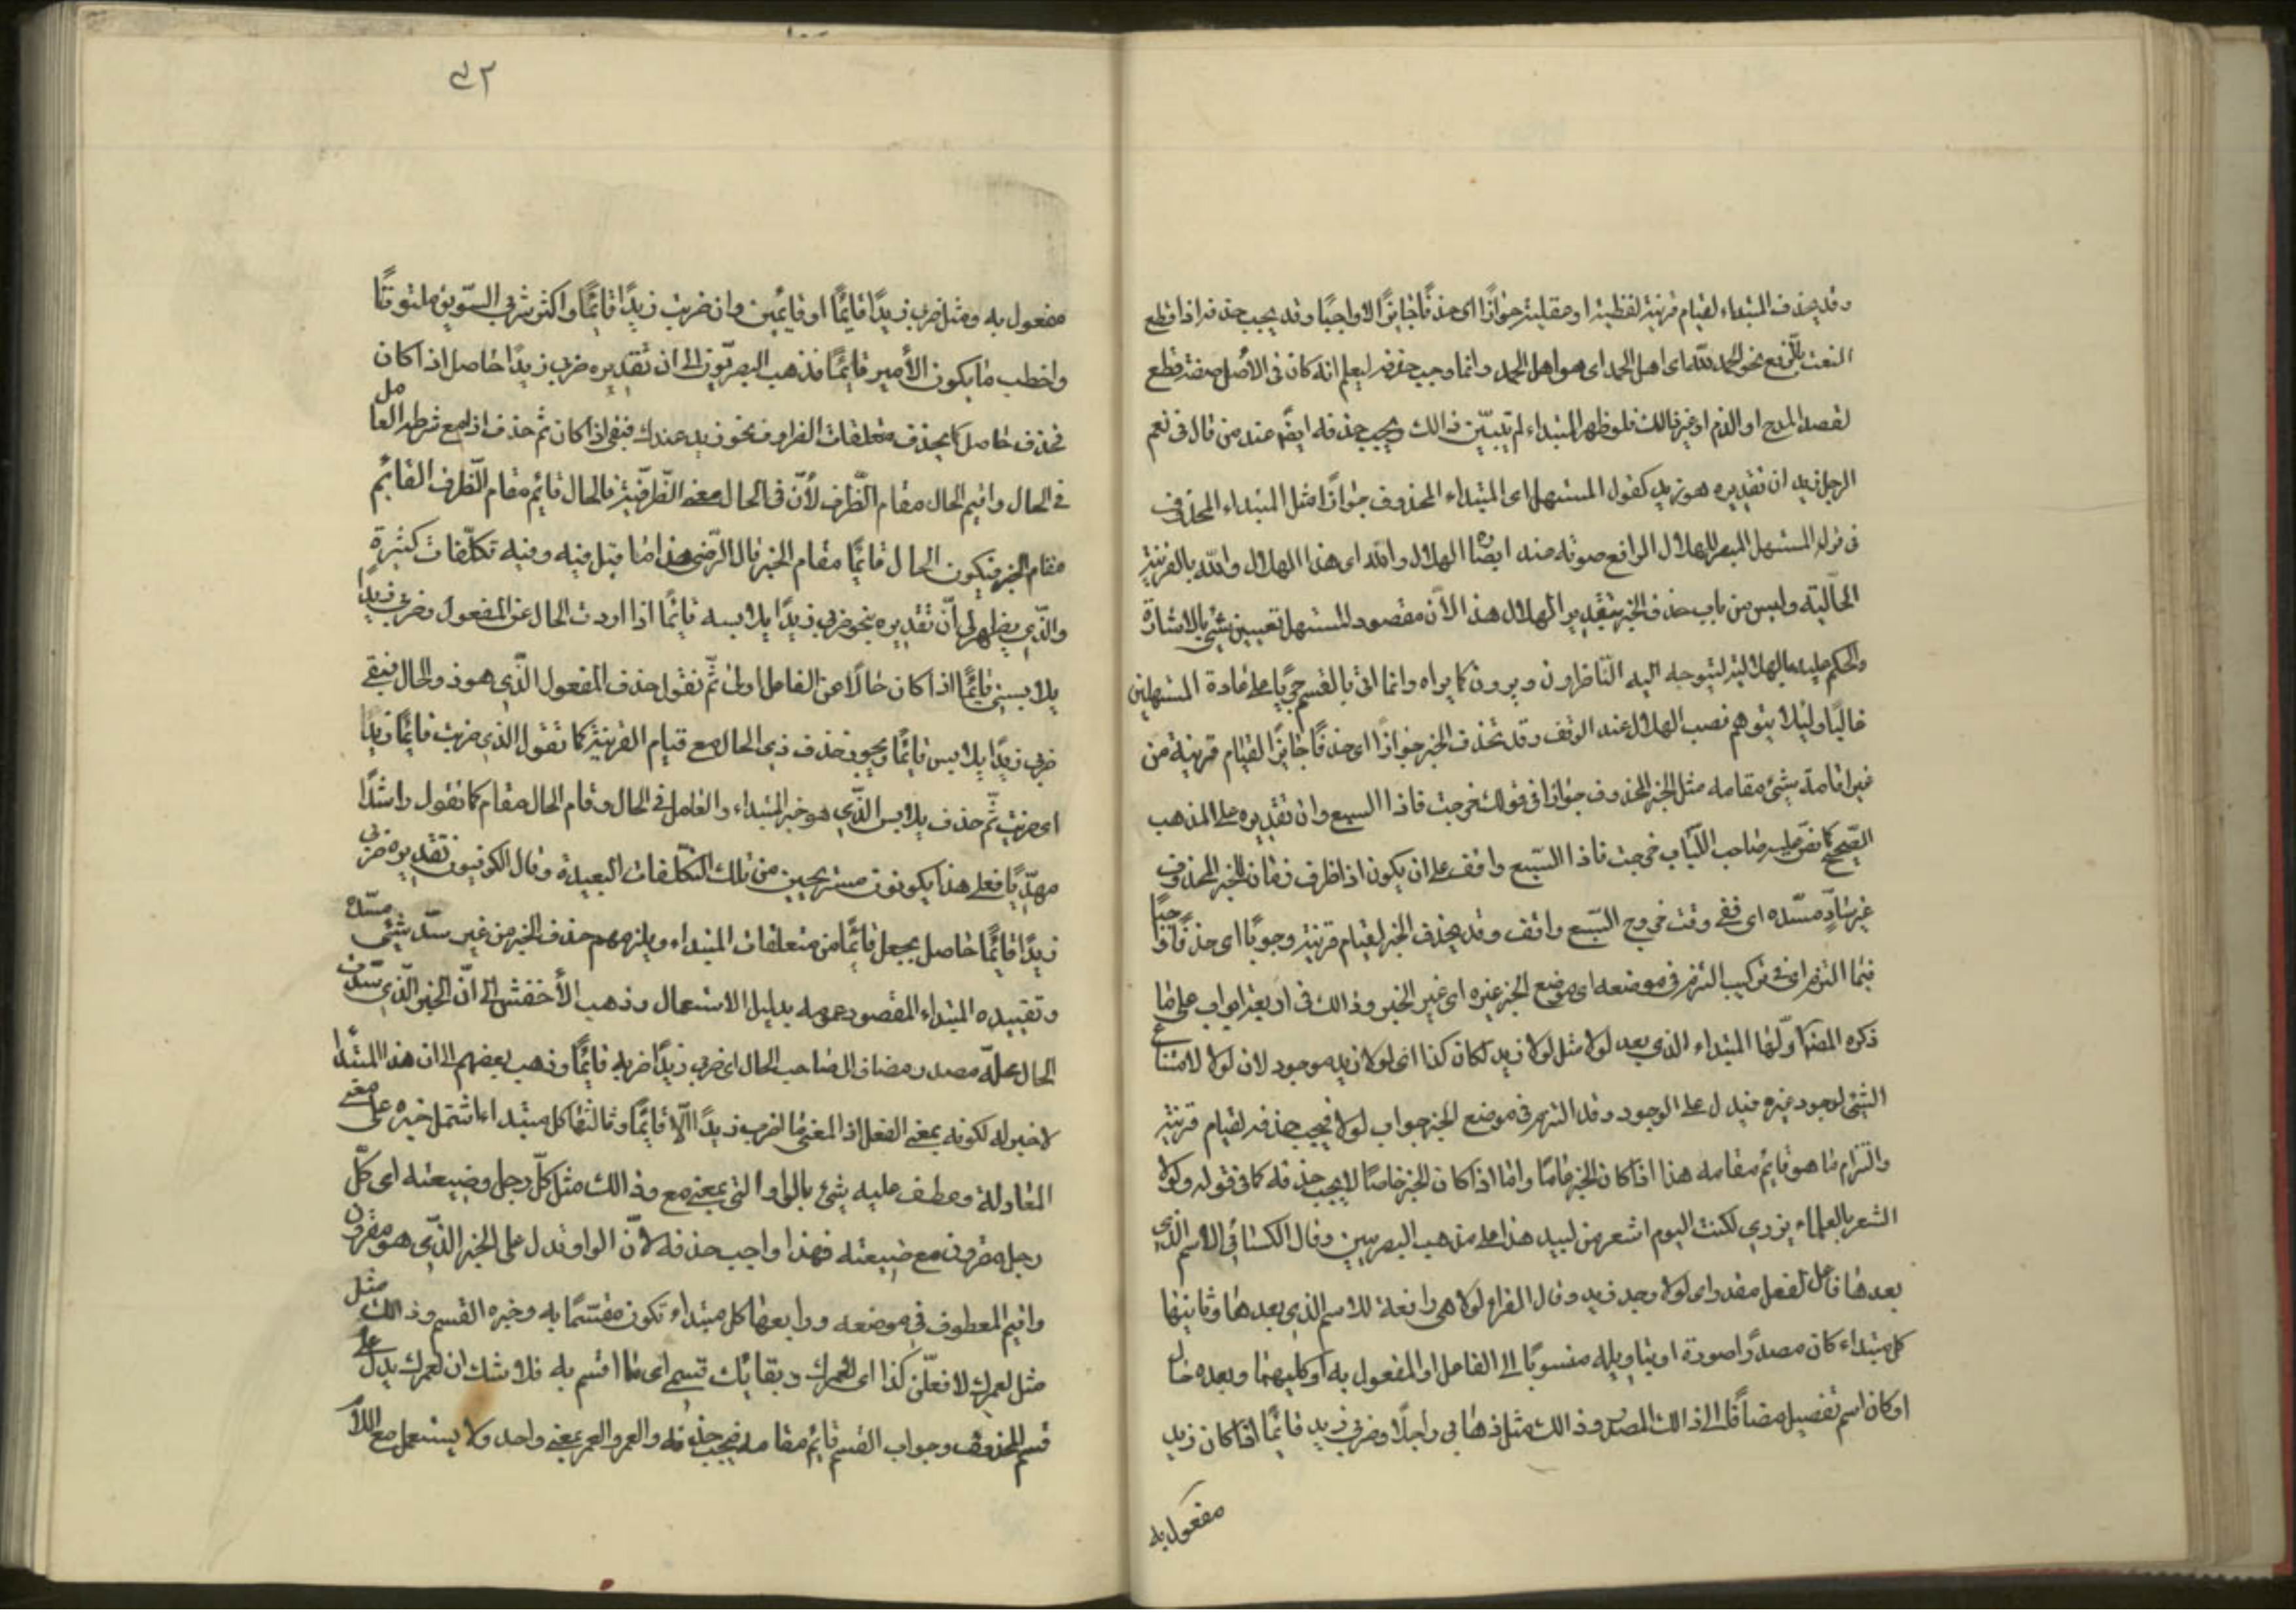 وقد يحذف المبتداء لقيام قرينة لفظية او عقلية جوازًا اى حذفًا جايزًا لا واجبًا وقد يجب حذفه اذا قطع
النعت بالرفع نحو الحمد لله اهل الحمد اى هو اهل الحمد وانما وجب حذفه ليعلم انه كان فى الأصل صفة قطع
لقصد المدح او الذم او غير ذالك فلو ظهر المبتداء لم يتبيّن ذالك ويجب حذفه ايضًا عند من قال فى نعم
الرجل زيد ان تقديره هو زيد كقول المستهل اى المبتداء المحذوف جوازًا مثل المبتداء المحذوف
فى قوله المستهل المبصر للهلال الرافع صوته عند ابصاره الهلال والله اى هذا الهلال والله بالقرينة
الحاليّة وليس من باب حذف الخبر بتقدير الهلال هذا لأن مقصود المستهل تعيين شئ بالاشارة
والحكم عليه بالهلالية ليتوجه اليه الناظرون ويرون كما يراه وانما اتى بالقسم جريًا على عادة المستهلين
غالبًا وليلا يتوهم نصب الهلال عند الوقف وقد تحذف الخبر جوازًا اى حذفًا جايزًا لقيام قرينة من
غير اقامة شئ مقامه مثل الخبر المحذوف جوازا فى قولك خرجت فاذا السبع وان تقديره على المذهب
الصّحيح كما نصّ عليه صاحب اللّباب خرجت فاذا السّبع واقف على ان يكون اذا ظرف زمان للخبر المحذوف
غير سادٍّ مسّده اى ففى وقت خروجى السّبع واقف وقد يحذف الخبر لقيام قرينة وجوبًا اى حذفًا واجبًا
فيما التزم اى فى تركيب التزم فى موضعه اى موضع الخبر غيره اى غير الخبر وذالك فى اربعة ابواب على ما
ذكره المصنف اوّلها المبتداء الذى بعد لولا مثل لولا زيد لكان كذا اى لولا زيد موجود لان لولا لامتناع
الشئ لوجود غيره فيدل على الوجود وقد التزم فى موضع الخبر جواب لولا فيجب حذفه لقيام قرينة
والتزام ما هو قايم مقامه هذا اذا كان الخبر عامًا واما اذا كان الخبر خاصًا لا يجب حذفه كما فى قوله ولولا
الشعر بالعلماء يزرى لكنت اليوم اشعر من لبيد هذا على مذهب البصريين وقال الكسائى الاسم الذى
بعدها فاعل لفعل مقدر اى لولا وجد زيد وقال الفراء لولا هى رافعة للاسم الذى بعدها وثانيها
كل مبتداء كان مصدرًا صورة او بتاويله منسوبًا الى الفاعل او المفعول به او كليهما وبعده حال
او كان اسم تفصيل مضافًا الى ذالك المصدر وذالك مثل ذهابى راجلًا وضرب زيد قائمًا اذا كان زيد
مفعول به
٤٢
مفعول به ومثل ضرب زيدًا قايمًا او قايمين وان ضربت زيدًا قائمًا واكثر شربى السّويق ملتوتًا
واخطب ما يكون الأمير قايمًا فذهب البصريّون الى ان تقديره ضربى زيدًا حاصل اذا كان
فحذف حاصل كما يحذف متعلقات الظروف نحو زيد عندك فبقى اذا كان ثم حذف اذا مع شرطه العامل
فى الحال واقيم الحال مقام الظّرف لأنّ فى الحال معنى الظّرفيّة فالحال قائم مقام الظّرف القائم
مقام الخبر فيكون الحال قائمًا مقام الخبر قال الرّضى هذا ما قيل فيه وفيه تكلّفات كثيرة
والّذى يظهر لى أنّ تقديره بنحو ضربى زيدًا يلابسه قائمًا اذا اردت الحال عن المفعول وضربى زيدًا
يلابسنى قائمًا اذا كان حالًا عن الفاعل اولى ثمّ نقول حذف المفعول الّذى هو ذو الحال فبقى
ضربى زيدًا يلابس قائمًا ويجوز حذف ذى الحال مع قيام القرينة كما تقول الذى ضربت قائمًا زيدًا
اى ضربته ثمّ حذف يلابس الّذى هو خبر المبتداء والعامل فى الحال وقام الحال مقامه كما تقول راشدًا
مهديًا فعلى هذا يكونون مستريحين من تلك التكلّفات البعيدة وقال الكوفيون تقديره ضربى
زيدًا قايمًا حاصل بجعل قائمًا من متعلقات المبتداء ويلزمهم حذف الخبر من غير سدّ شئ مسدّه
وتقييده المبتداء المقصود عمومه بدليل الاستعمال وذهب الأخفش الى انّ الخبر الّذى سدّت
الحال محلّه مصدر مضاف الى صاحب الحال اى ضربى زيدًا ضربه قايمًا وذهب بعضهم الى ان هذا المبتدأ
لا خبر له لكونه بمعنى الفعل اذ المعنى ما اضرب زيدًا الّا قايمًا وثالثها كل مبتداء اشتمل خبره على معنى
المقارنة وعطف عليه شئ بالواو التى بمعنى مع وذالك مثل كلّ رجل وضيعته اى كلّ
رجل مقرون مع ضيعته فهذا واجب حذفه لأنّ الواو تدل على الخبر الذّى هو مقرون
واقيم المعطوف فى موضعه ورابعها كل مبتداء تكون مقسّمًا به وخبره القسم وذالك مثل
مثل لعمرك لافعلّن كذا اى لعمرك وبقائك قسمى اى ما اقسم به فلا شك ان لعمرك يدل على
قسم المحذوف وجواب القسم قايم مقامه فيجب حذفه والعمر والعمر بمعنى واحد ولا يستعمل مع اللام